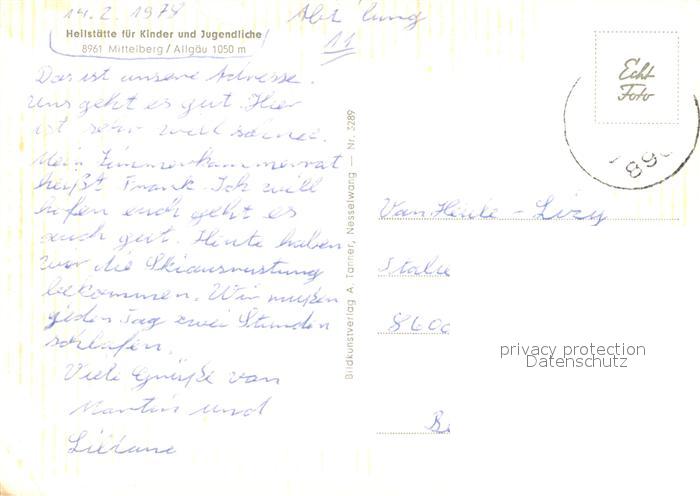 14.2.1978
Abteilung
11
Heilstätte für Kinder und Jugendliche
8961 Mittelberg / Allgäu 1050 m
Das ist unsere Adresse.
Uns geht es gut. Hier
ist sehr viel schnee.
Mein Zimmerkammerrat
heißt Frank. Ich will
hofen euch geht es
auch gut. Heute haben
wir die Skiausrustung
bekommen. Wir mußen
jeden Tag zwei Stunden
schlafen.
Viele Grüße von
Martin und
Liliane
Bildkunstverlag A. Tanner, Nesselwang — Nr. 3289
Echt
Foto
896
Van
8600
B
privacy protection
Datenschutz